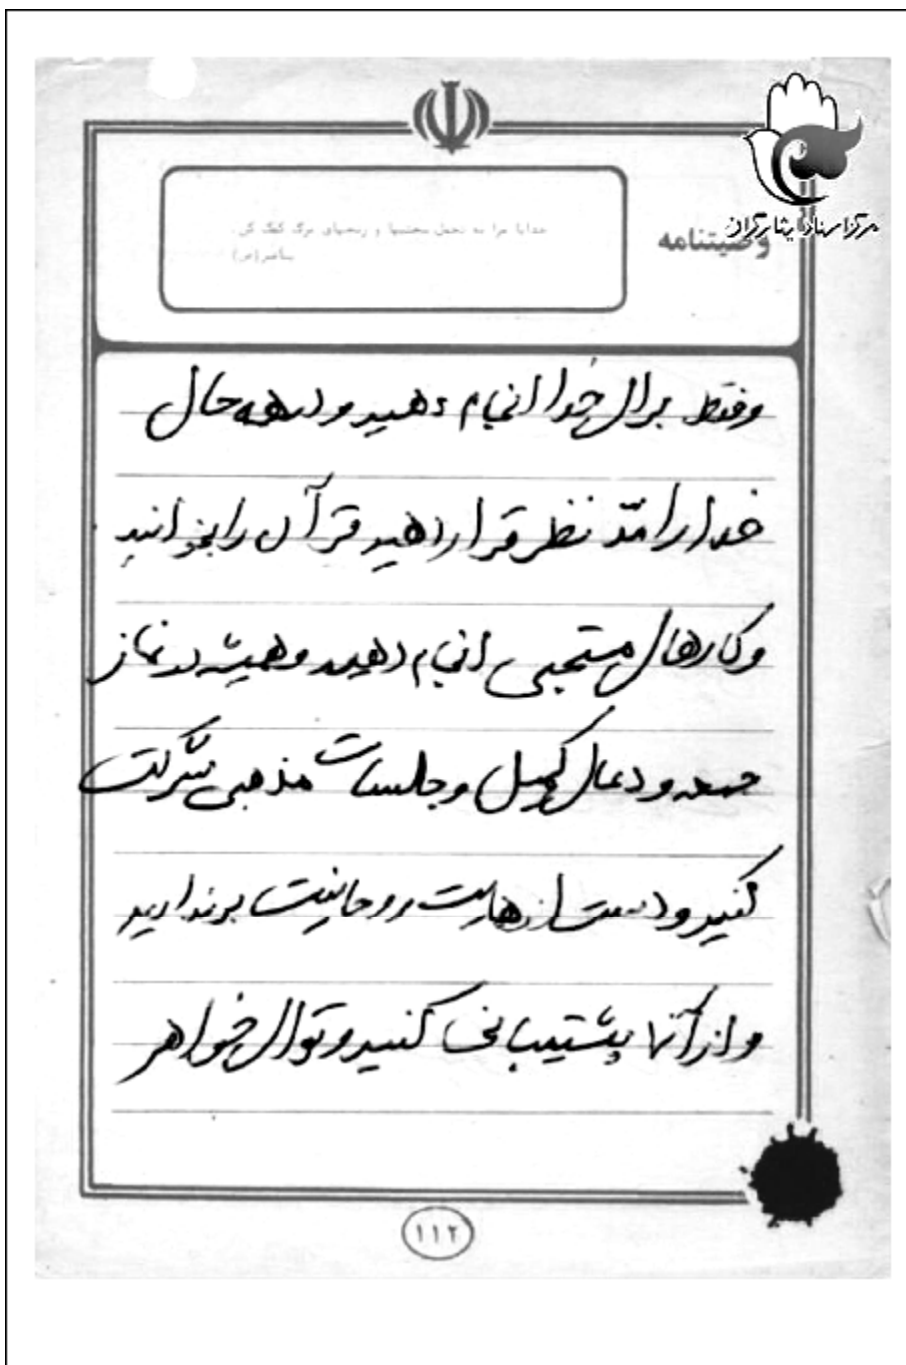 مرکز اسناد ایثارگران
وصیتنامه
خدایا مرا به تحمل سختیها و رنجهای مرگ کمک کن.
وفقط برای خدا انجام دهید و در همه حال
خدا را مدّ نظر قرار دهید قرآن را بخوانید
و کارهای مستحبی انجام دهید و همیشه در نماز
جمعه و دعای کمیل و جلسات مذهبی شرکت
کنید و دست از حمایت روحانیت برندارید
و از آنها پشتیبانی کنید و تو ای خواهر
۱۱۲